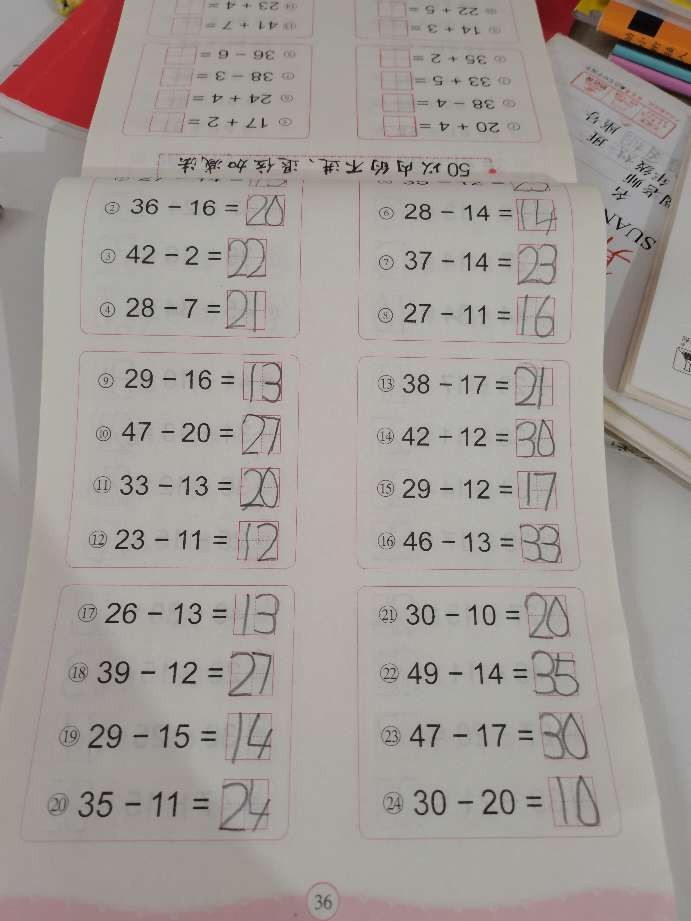 50以内的不进、退位加减法
① 20 + 4 =
⑤ 17 + 2 =
② 38 − 4 =
⑥ 24 + 4 =
③ 33 + 5 =
⑦ 38 − 3 =
④ 35 + 2 =
⑧ 36 − 6 =
⑨ 14 + 3 =
⑬ 41 + 7 =
22 + 5 =
23 + 4 =
② 36 − 16 = 20
⑥ 28 − 14 = 14
③ 42 − 2 = 22
⑦ 37 − 14 = 23
④ 28 − 7 = 21
⑧ 27 − 11 = 16
⑨ 29 − 16 = 13
⑬ 38 − 17 = 21
⑩ 47 − 20 = 27
⑭ 42 − 12 = 30
⑪ 33 − 13 = 20
⑮ 29 − 12 = 17
⑫ 23 − 11 = 12
⑯ 46 − 13 = 33
⑰ 26 − 13 = 13
㉑ 30 − 10 = 20
⑱ 39 − 12 = 27
㉒ 49 − 14 = 35
⑲ 29 − 15 = 14
㉓ 47 − 17 = 30
⑳ 35 − 11 = 24
㉔ 30 − 20 = 10
36
SUAN
名
老师
年级
班
座号